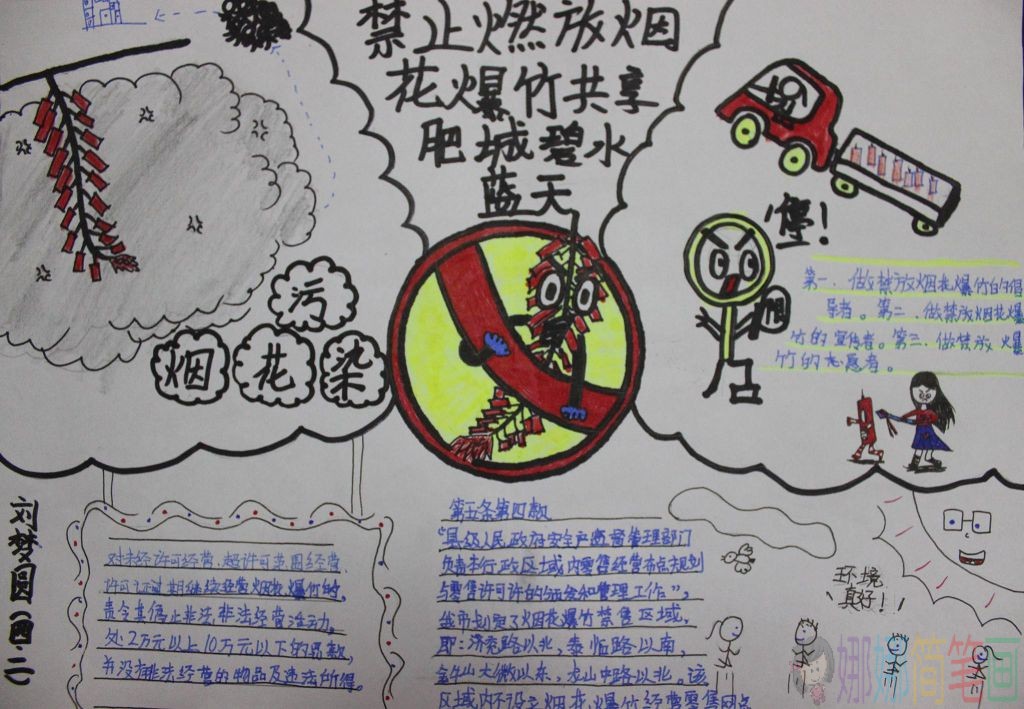 禁止燃放烟
花爆竹共享
肥城碧水
蓝天
污
烟花染
第一、做禁放烟花爆竹的倡
导者。第二、做禁放烟花爆
竹的宣传者。第三、做禁放 爆
竹的志愿者。
刘梦圆(四.二)
对未经许可经营、超许可范围经营、
许可证过期继续经营烟花爆竹的,
责令其停止非法经营活动,
处2万元以上10万元以下的罚款,
并没有非法经营的物品及违法所得。
第五条第四款
“县级人民政府安全产监督管理部门
负责本行政区域内零售经营布点规划
与零售许可证的 和管理工作”,
我市划定了烟花爆竹禁售区域,
即:济兖路以北,泰临路以南,
金牛山大 以东,龙山中路以北。该
区域内不设立烟花爆竹经营零售网点
环境
真好!
娜娜简笔画